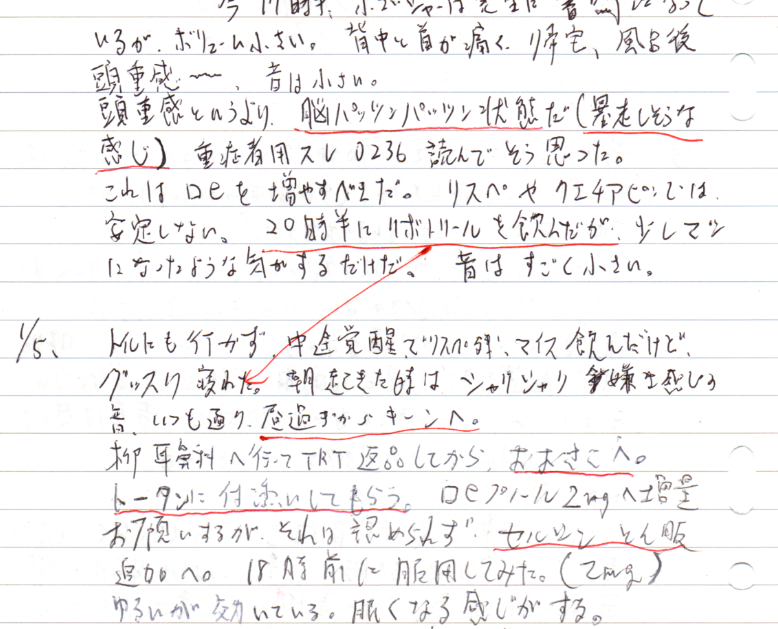 今17時半、シャーは完全に音〜になって
いるが、ボリューム小さい。背中と首が痛く、帰宅、風呂後
頭重感〜、音は小さい。
頭重感というより、脳パッツンパッツン状態だ(暴走しそうな
感じ) 重症者用スレ0236 読んでそう思った。
これはロヒを増やすべきだ。リスペやクエチアピンでは、
安定しない。20時半にリボトリールを飲んだが、少しマシ
になったような気がするだけだ。音はすごく小さい。
1/5、トイレにも行かず、中途覚醒でリスペ、マイス飲んだけど、
グッスリ寝れた。朝起きた時はシャリシャリ 嫌な感じの
音、いつも通り、昼過ぎからキーンへ。
柳耳鼻科へ行ってTRT返品してから、おおさこへ。
トータンに付添いしてもらう。ロヒプノール2mgへ増量
お願いするが、それは認められず、セルシン とん服
追加へ。18時前に服用してみた。(2mg)
ゆるいが効いている。眠くなる感じがする。